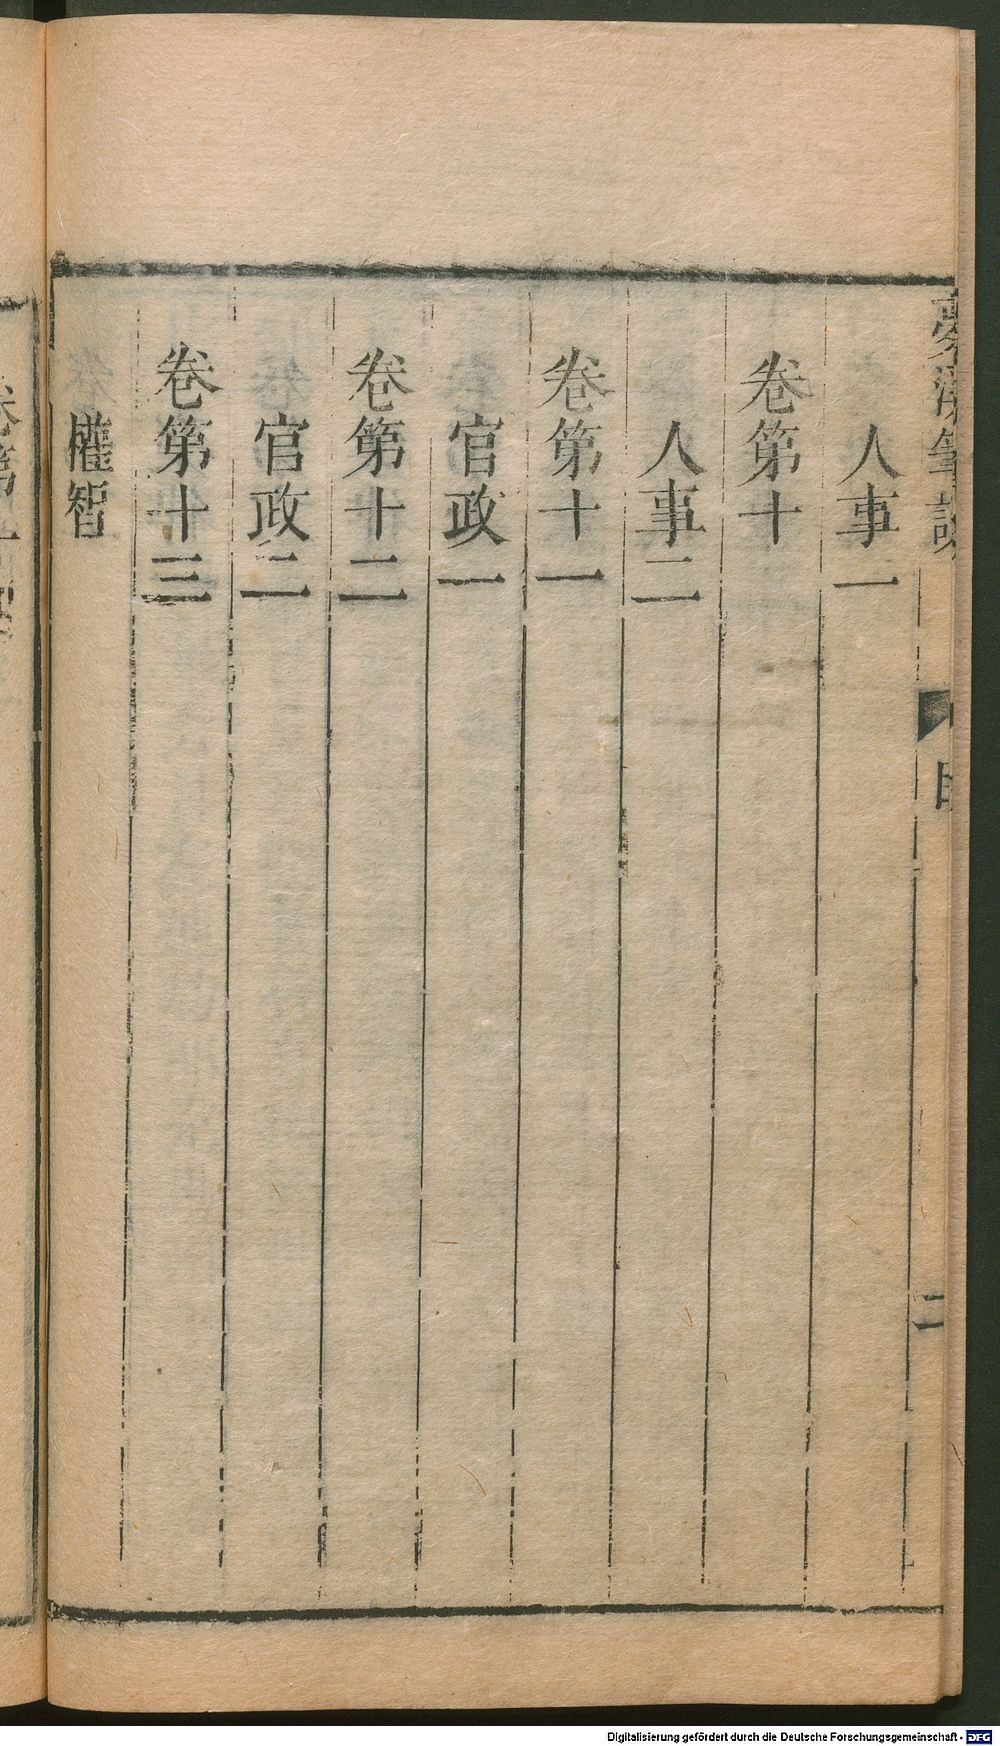 夢溪筆談
目
二
人事一
卷第十
人事二
卷第十一
官政一
卷第十二
官政二
卷第十三
權智
Digitalisierung gefördert durch die Deutsche Forschungsgemeinschaft - DFG